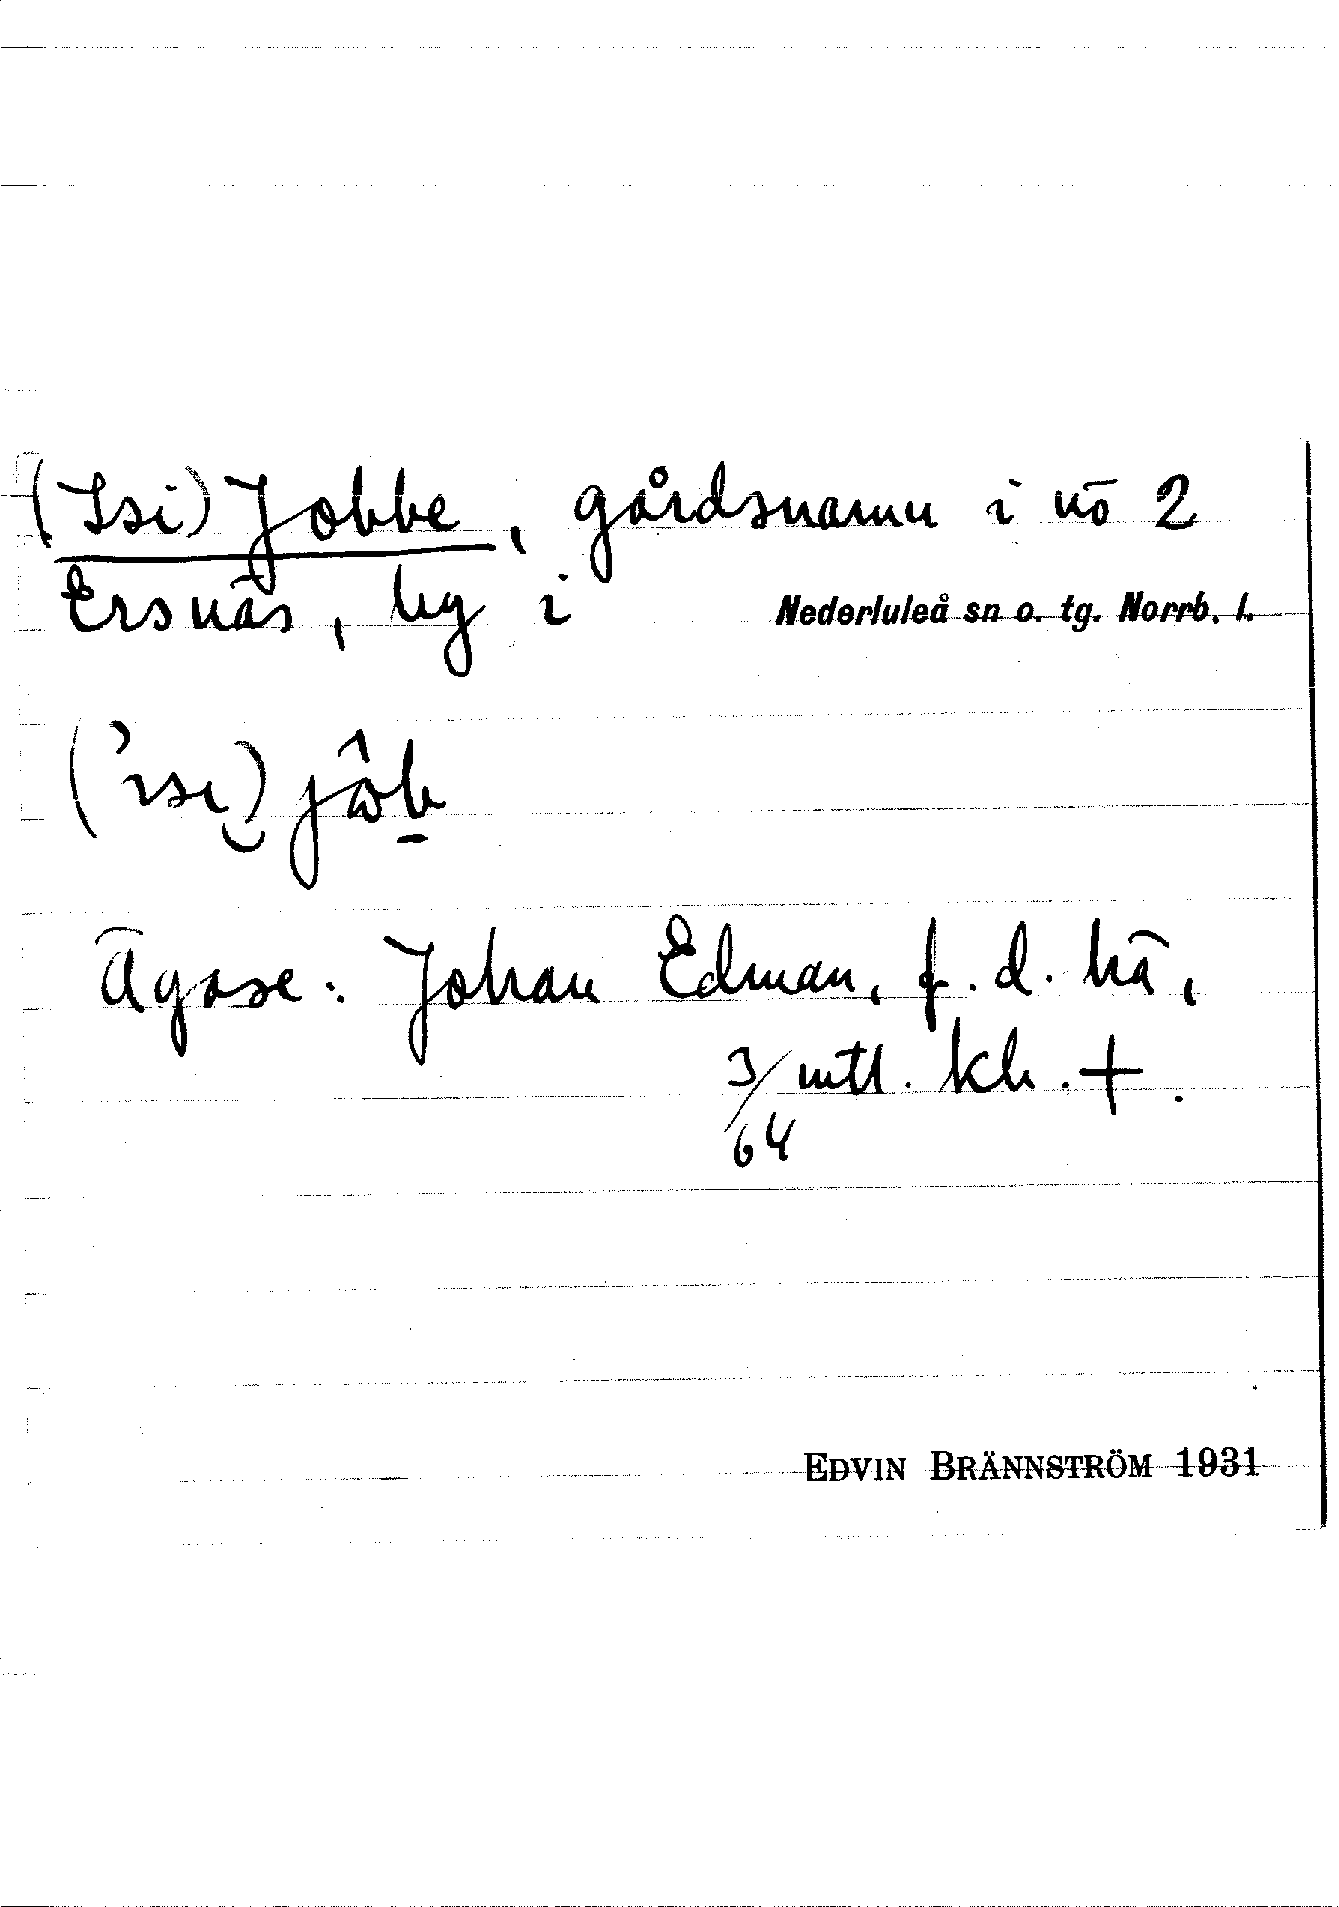 (Isi) Jobbe, gårdsnamn i nō 2
Ersnäs, by i Nederluleå sn o. tg. Norrb. l.
Ägare: Johan Edman, f. d. hä,
3/64 mtl. kh. +.
EDVIN BRÄNNSTRÖM 1931